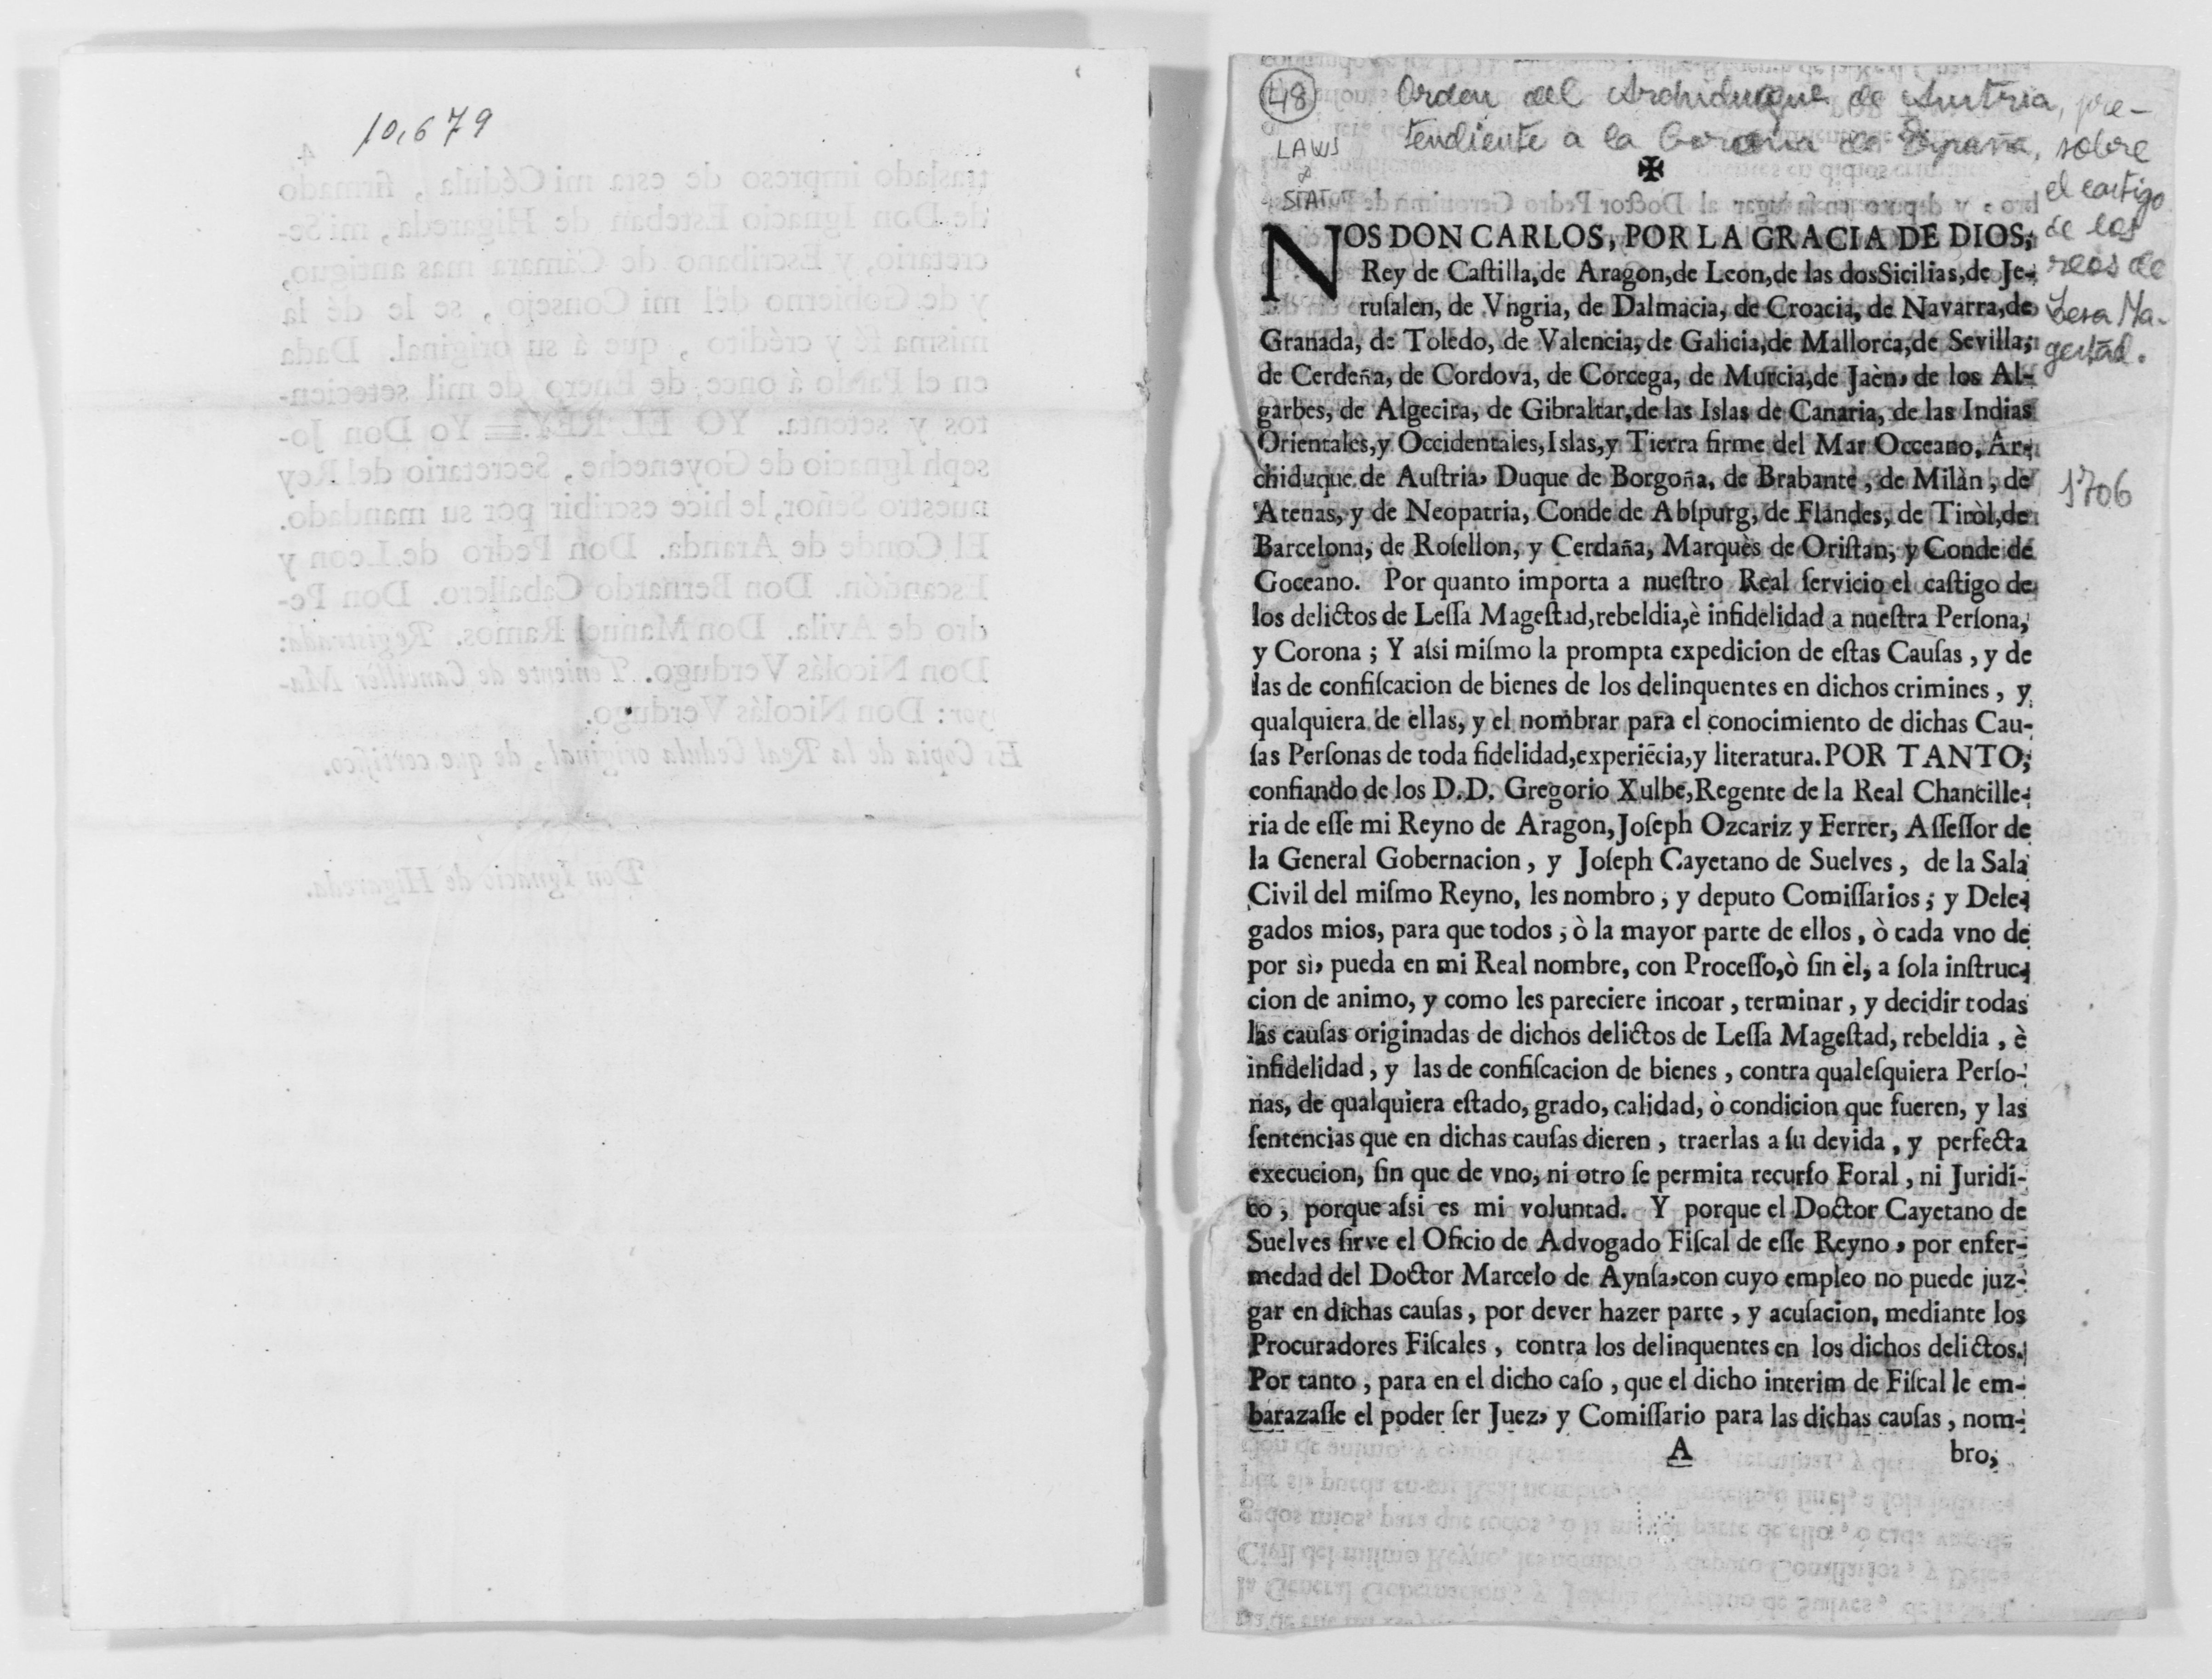 10,679
4
traslado impreso de esta mi Cédula, firmado
de Don Ignacio Esteban de Higareda, mi Se-
cretario, y Escribano de Cámara mas antiguo,
y de Gobierno del mi Consejo, se le dé la
misma fé y crédito, que á su original. Dada
en el Pardo á once de Enero de mil setecien-
tos y setenta. YO EL REY. Yo Don Jo-
seph Ignacio de Goyeneche, Secretario del Rey
nuestro Señor, le hice escribir por su mandado.
El Conde de Aranda. Don Pedro de Leon y
Escandón. Don Bernardo Caballero. Don Pe-
dro de Avila. Don Manuel Ramos. Registrada:
Don Nicolás Verdugo. Teniente de Cancillér Ma-
yor: Don Nicolás Verdugo.
Es Copia de la Real Cedula original, de que certifico.
Don Ignacio de Higareda.
48
LAWS
&
STAT
Orden del Archiduque de Austria, pre-
tendiente a la Corona de España, sobre
el castigo
de los
reos de
Lesa Ma-
gestad.
1706
✠
NOS DON CARLOS, POR LA GRACIA DE DIOS,
Rey de Caſtilla, de Aragon, de Leon, de las dos Sicilias, de Je-
ruſalen, de Vngria, de Dalmacia, de Croacia, de Navarra, de
Granada, de Toledo, de Valencia, de Galicia, de Mallorca, de Sevilla,
de Cerdeña, de Cordova, de Corcega, de Murcia, de Jaèn, de los Al-
garbes, de Algecira, de Gibraltar, de las Islas de Canaria, de las Indias
Orientales, y Occidentales, Islas, y Tierra firme del Mar Occeano, Ar-
chiduque de Auſtria, Duque de Borgoña, de Brabante, de Milàn, de
Atenas, y de Neopatria, Conde de Abſpurg, de Flandes, de Tiròl, de
Barcelona, de Roſellon, y Cerdaña, Marquès de Oriſtan, y Conde de
Goceano. Por quanto importa a nueſtro Real ſervicio el caſtigo de
los delictos de Leſſa Mageſtad, rebeldia, è infidelidad a nueſtra Perſona,
y Corona; Y aſsi miſmo la prompta expedicion de eſtas Cauſas, y de
las de confiſcacion de bienes de los delinquentes en dichos crimines, y
qualquiera de ellas, y el nombrar para el conocimiento de dichas Cau-
ſas Perſonas de toda fidelidad, experiẽcia, y literatura. POR TANTO,
confiando de los D.D. Gregorio Xulbe, Regente de la Real Chancille-
ria de eſſe mi Reyno de Aragon, Joſeph Ozcariz y Ferrer, Aſſeſſor de
la General Gobernacion, y Joſeph Cayetano de Suelves, de la Sala
Civil del miſmo Reyno, les nombro, y deputo Comiſſarios, y Dele-
gados mios, para que todos, ò la mayor parte de ellos, ò cada vno de
por sì, pueda en mi Real nombre, con Proceſſo, ò ſin èl, a ſola inſtruc-
cion de animo, y como les pareciere incoar, terminar, y decidir todas
las cauſas originadas de dichos delictos de Leſſa Mageſtad, rebeldia, è
infidelidad, y las de confiſcacion de bienes, contra qualeſquiera Perſo-
nas, de qualquiera eſtado, grado, calidad, ò condicion que fueren, y las
ſentencias que en dichas cauſas dieren, traerlas a ſu devida, y perfecta
execucion, ſin que de vno, ni otro ſe permita recurſo Foral, ni Juridi-
co, porque aſsi es mi voluntad. Y porque el Doctor Cayetano de
Suelves ſirve el Oficio de Advogado Fiſcal de eſſe Reyno, por enfer-
medad del Doctor Marcelo de Aynſa, con cuyo empleo no puede juz-
gar en dichas cauſas, por dever hazer parte, y acuſacion, mediante los
Procuradores Fiſcales, contra los delinquentes en los dichos delictos.
Por tanto, para en el dicho caſo, que el dicho interim de Fiſcal le em-
barazaſſe el poder ſer Juez, y Comiſſario para las dichas cauſas, nom-
A bro,